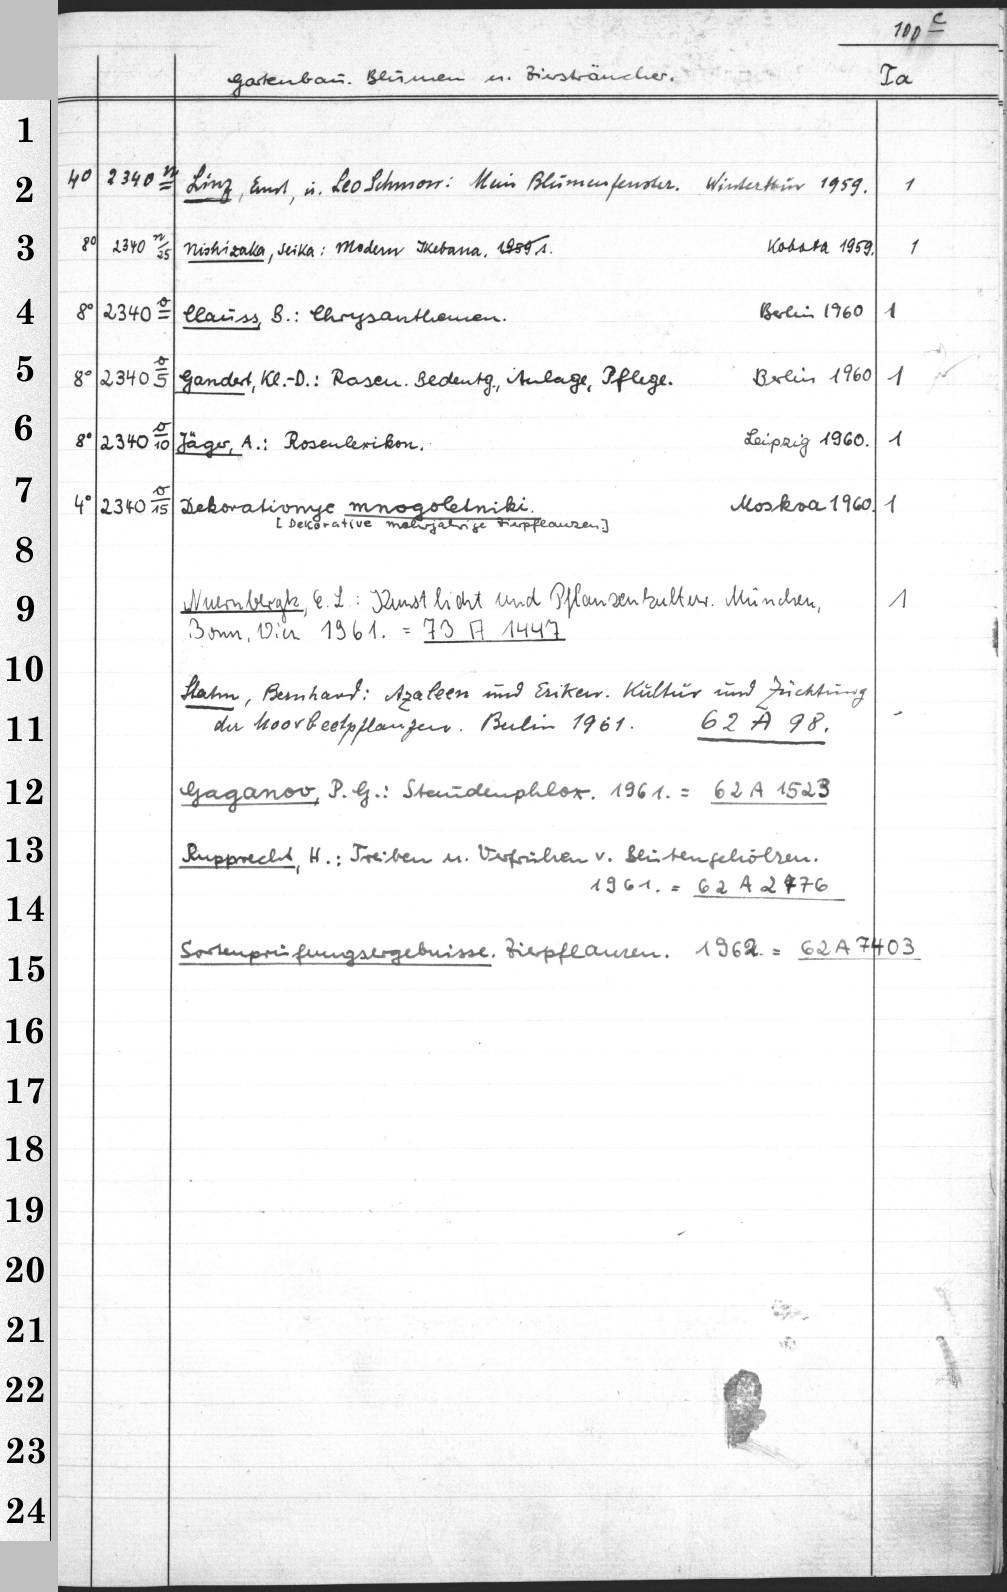 100 c
Gartenbau. Blumen u. Ziersträucher. Ia
1
2 4° 2340 n Linz, Ernst, u. Leo Schmon: Mein Blumenfenster. Winterthur 1959. 1
3 8° 2340 n/25 Nishizaka, Seika: Modern Ikebana. 1959 1. 1959. 1
4 8° 2340 o Clauss, B.: Chrysanthemen. Berlin 1960 1
5 8° 2340 o/5 Gandert, Kl.-D.: Rasen. Bedeutg., Anlage, Pflege. Berlin 1960 1
6 8° 2340 o/10 Jäger, A.: Rosenlexikon. Leipzig 1960. 1
7 4° 2340 o/15 Dekorativnye mnogoletniki. Moskva 1960. 1
[Dekorative mehrjährige Zierpflanzen]
8
9 Nuernbergk, E. L.: Kunstlicht und Pflanzenkultur. München, 1
Bonn, Wien 1961. = 73 A 1447
10
Stahn, Bernhard: Azaleen und Eriken. Kultur und Züchtung
11 der Moorbeetpflanzen. Berlin 1961. 62 A 98. -
12 Gaganov, P. G.: Staudenphlox. 1961. = 62 A 1523
13 Rupprecht, H.: Treiben u. Verfrühen v. Blütengehölzen.
1961. = 62 A 2476
14
15 Sortenprüfungsergebnisse. Zierpflanzen. 1962. = 62 A 7403
16
17
18
19
20
21
22
23
24